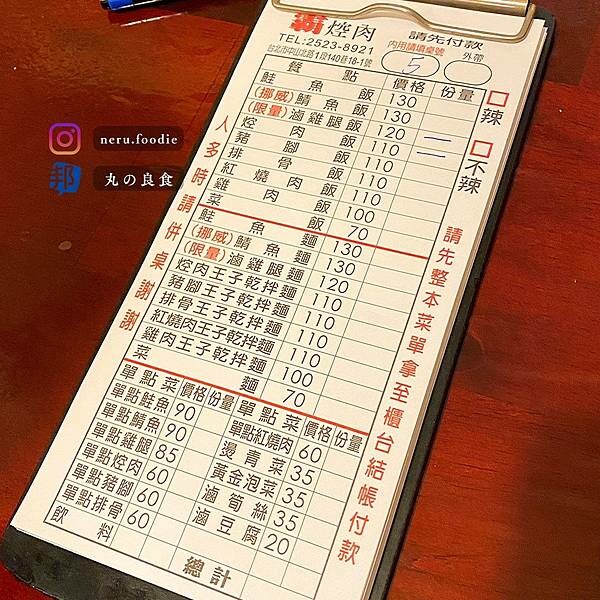 焢肉
請先付款
TEL:2523-8921
內用請填桌號 外帶
台北市中山北路1段140巷18-1號
5
餐點 價格 份量
鮭魚飯 130
(挪威)鯖魚飯 130
(限量)滷雞腿飯 120
焢肉飯 110 二
豬腳飯 110
排骨飯 110
紅燒肉飯 110
雞肉飯 100
菜飯 70
鮭魚麵 130
(挪威)鯖魚麵 130
(限量)滷雞腿麵 120
焢肉王子乾拌麵 110
豬腳王子乾拌麵 110
排骨王子乾拌麵 110
紅燒肉王子乾拌麵 110
雞肉王子乾拌麵 100
菜麵 70
單點菜 價格 份量 單點菜 價格 份量
單點鮭魚 90 單點紅燒肉 60
單點鯖魚 90 燙青菜 35
單點雞腿 85 黃金泡菜 35
單點焢肉 60 滷筍絲 35
單點豬腳 60 滷豆腐 20
單點排骨 60
飲料
總計
辣
不辣
人多時請併桌謝謝
請先整本菜單拿至櫃台結帳付款
neru.foodie
邦 丸の良食